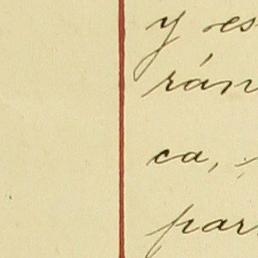 y es
rán
ca,
par